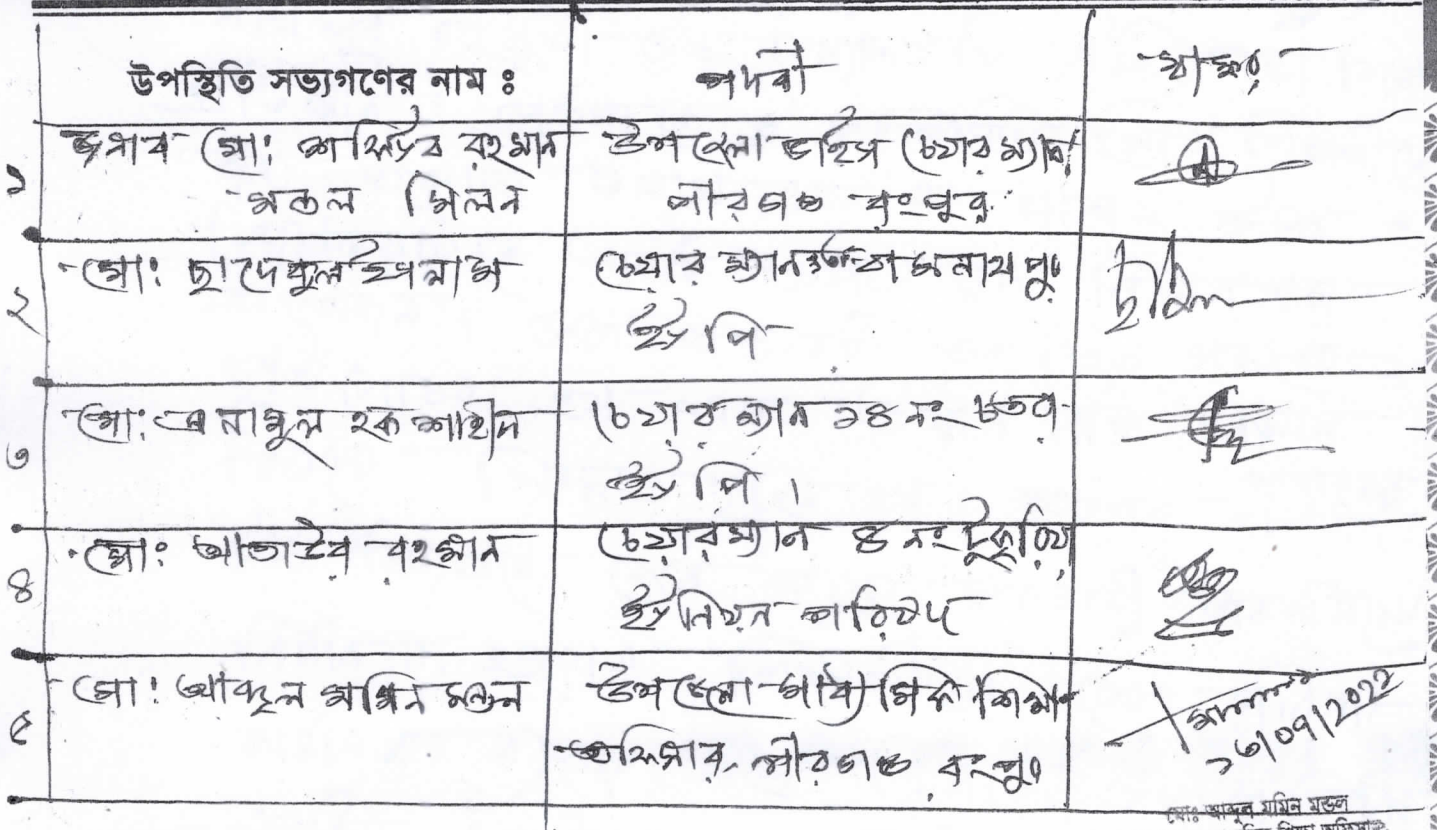 উপস্থিতি সভ্যগণের নাম ঃ পদবী স্বাক্ষর
১ জনাব মো: শফিউর রহমান উপজেলা ভাইস চেয়ারম্যান
মন্ডল মিলন পীরগঞ্জ রংপুর
২ মো: ছাদেকুল ইসলাম চেয়ারম্যান রামনাথপুর
ইউপি
৩ মো: এনামুল হক শাহীন চেয়ারম্যান ১৪ নং চতরা
ইউপি ।
৪ মো: আতাউর রহমান চেয়ারম্যান ৪ নং টুকুরিয়া
ইউনিয়ন পরিষদ
৫ মো: আব্দুল মমিন মন্ডল উপজেলা মাধ্যমিক শিক্ষা
অফিসার, পীরগঞ্জ রংপুর
মোঃ আব্দুল মমিন মন্ডল